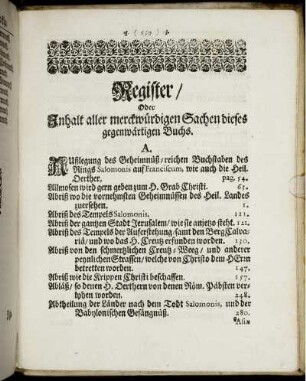 Register/
Oder
Inhalt aller merckwürdigen Sachen dieses
gegenwärtigen Buchs.
A.
AUßlegung des Geheimnüß-reichen Buchstaben des
Rings Salomonis auf Franciscum, wie auch die Heil.
Oerther. pag. 54.
Allmosen wird gern geben zum H. Grab Christi. 65.
Abriß wo die vornehmsten Geheimnüssen des Heil. Landes
zuersehen. 1.
Abriß des Tempels Salomonis. 121.
Abriß der gantzen Stadt Jerusalem/ wie sie anjetzo steht. 122.
Abriß des Tempels der Aufersthehung/samt den Berg Calva-
riä/ und wo das H. Creutz erfunden worden. 130.
Abriß von den schmertzlichen Creutz-Weeg/ und anderer
peynlichen Strassen/ welche von Christo dem HErrn
betretten worden. 147.
Abriß wie die Krippen Christi beschaffen. 157.
Abläß/ so denen H. Oerthern von denen Röm. Päbsten ver-
lyhen worden. 248.
Abtheilung der Länder nach dem Todt Salomonis, und der
Babylonischen Gefängnüß. 280.